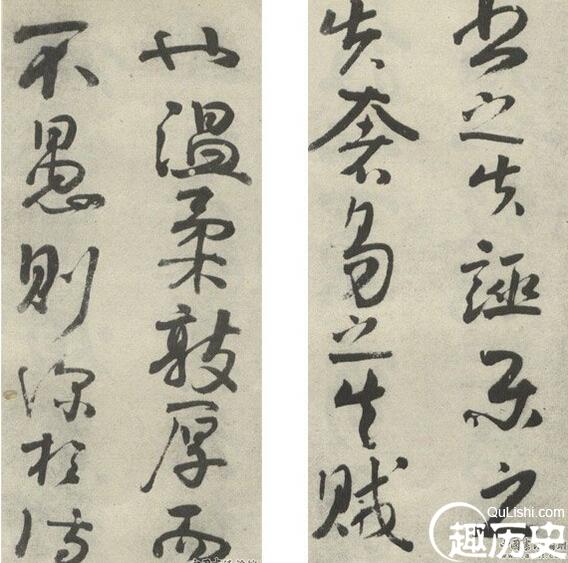 書之失誣樂之
失奢易之失賊
也温柔敦厚而
不愚則深於詩
QuLishi.com
趣历史